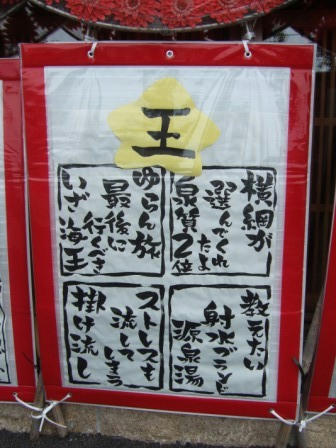 王
横綱が
選んでくれたよ
泉質2位
ゆらん旅
最後に行くべき
いざ海王
教えたい
射水ブランド
源泉湯
ストレスも
流してしまう
掛け流し